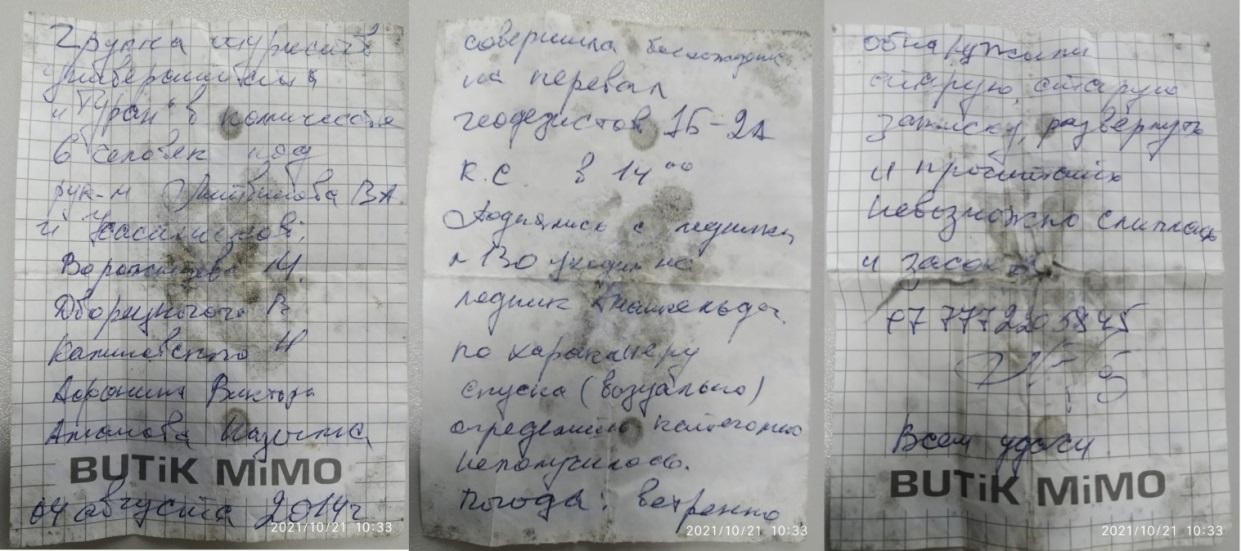 Группа туристов
университета
"Туран" в количестве
6 человек под
рук-м ВА.
и
М.
Дворецкого В
Калиновского Н
Афонина Виктора
Аманова
BUTiK MiMO
04 августа 2014г
2021/10/21 10:33
совершила восхождение
на перевал
геодезистов 1Б-2А
К.С. в 14 00
Поднялись с ледника
уходим на
ледник
по характеру
спуска (визуально)
определить категорию
неполучилось.
Погода: ветренно
2021/10/21 10:33
обнаружили
старую, старую
записку, развернуть
и прочитать
невозможно слиплась
и
Всем удачи
BUTiK MiMO
2021/10/21 10:33